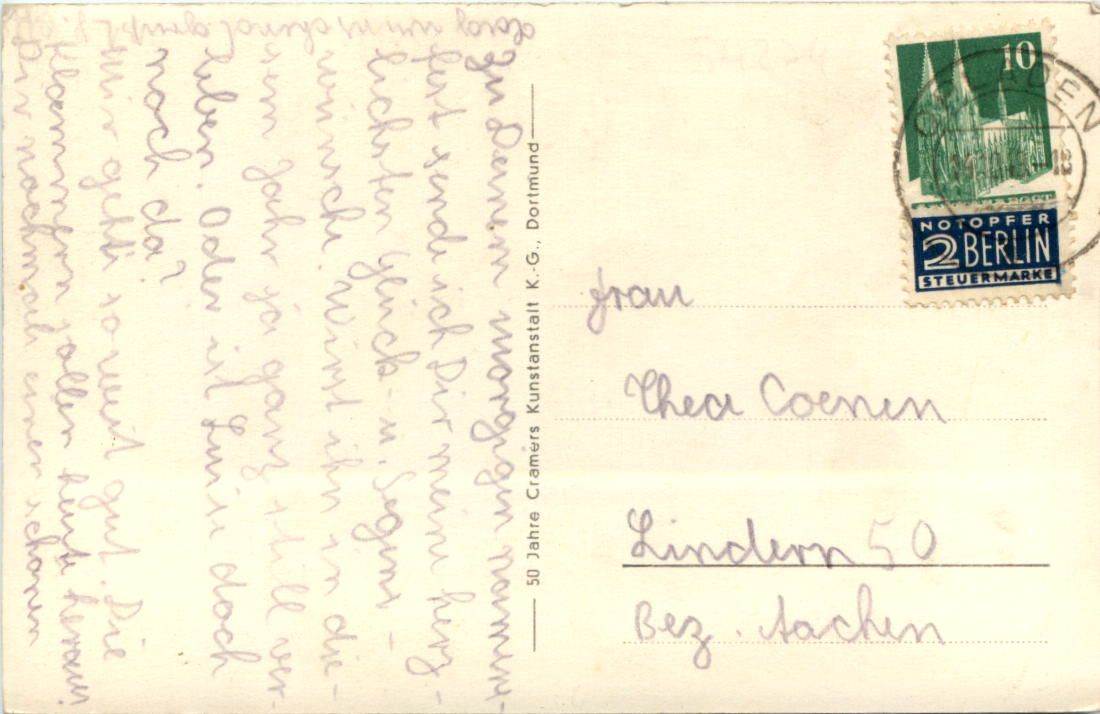 Zu Deinem morgigen Namens-
fest sende ich Dir meine herz-
lichsten Glück- u. Segens-
wünsche. Wirst ihn in die-
sem Jahr ja ganz still ver-
leben. Oder ist Luise doch
noch da?
Mir geht's soweit gut. Die
Klammern sollen heute heraus
Dir nochmals einen schönen
50 Jahre Cramers Kunstanstalt K.-G., Dortmund
10
NOTOPFER
2 BERLIN
STEUERMARKE
Frau
Thea Coenen
Lindern 50
Bez. Aachen